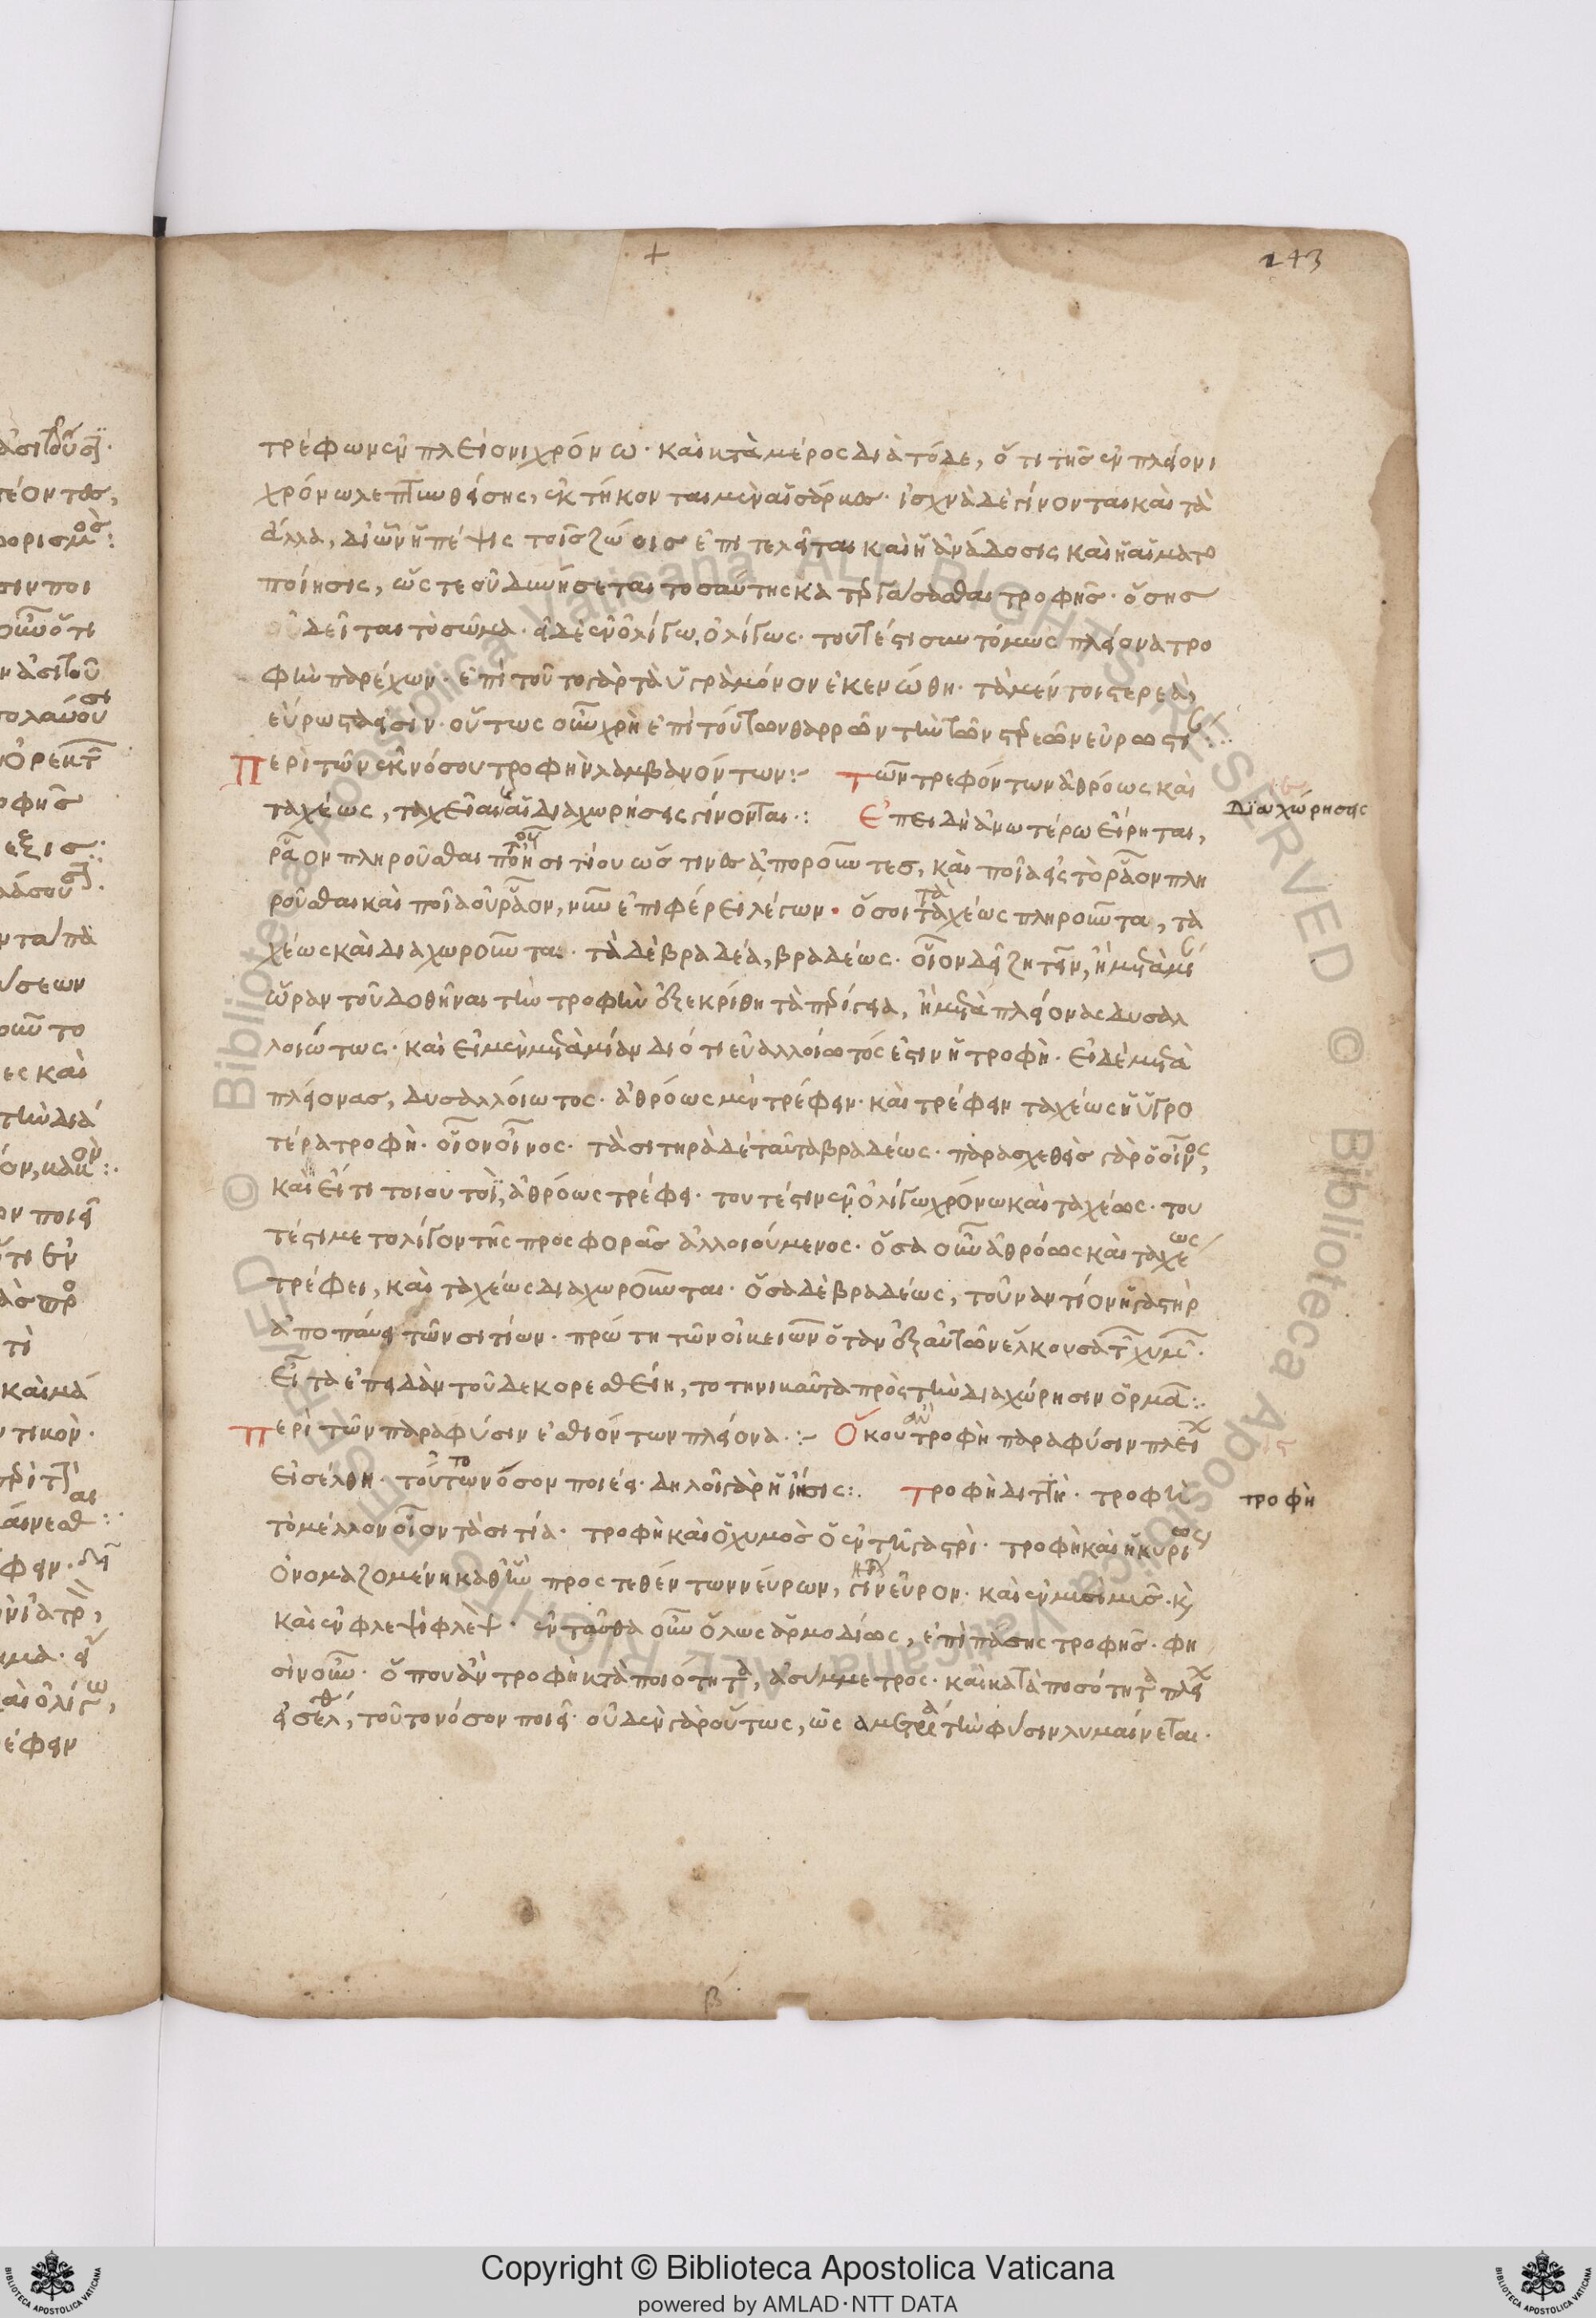 143
τρέφων ἐν πλείονι χρόνω· καὶ κατὰ μέρος διὰ τόδε, ὅτι τῆς ἐν πλείονι
χρόνω λεπτυνθείσης, ἐκτήκονται μὲν αἱ σάρκες· ἰσχνὰ δὲ γίνονται καὶ τὰ
ἄλλα, δι' ὧν ἡ πέψις τοῖς ζώοις ἐπιτελεῖται καὶ ἡ ἀνάδοσις καὶ ἡ αἱματο
ποίησις, ὥστε οὐ δυνήσεται τοσαύτης κατεργάσασθαι τροφῆς· ὅσης
δεῖται τὸ σῶμα· εἰ δὲ ἐν ὀλίγω, ὀλίγως· τουτέστι συντόμως πλείονα τρο
φὴν παρέχων· ἐπὶ τούτοις γὰρ τὰ ὑγρὰ μόνον ἐκενώθη· τὰ μέντοι στερεὰ,
εὔρωστά εἰσιν· οὕτως οὖν χρὴ ἐπὶ τούτων θαρρῶν τὴν τῶν στερεῶν εὐρωστί
Περὶ τῶν ἐκ νόσου τροφὴν λαμβανόντων:- Τῶν τρεφόντων ἀθρόως καὶ
ταχέως, ταχεῖαι καὶ αἱ διαχωρήσεις γίνονται:· Ἐπειδὴ ἀνωτέρω εἴρηται,
διαχώρησις
ρᾶον πληροῦσθαι ποτοῦ ἢ σιτίου ὥς τινες ἀποροῦντες, καὶ ποῖα εἰς τὸ ρᾶον πλη
ροῦσθαι καὶ ποῖα οὐ ρᾶον, νῦν ἐπιφέρει λέγων· ὅσοι ταχέως πληροῦνται, τα
χέως καὶ διαχωροῦνται· τὰ δὲ βραδέα, βραδέως· οἷον δεῖ ζητεῖν, ἢ μετὰ μί
ὥραν τοῦ δοθῆναι τὴν τροφὴν ἐξεκρίθη τὰ περίττεια, ἢ μετὰ πλείονας δυσαλ
λοιώτως· καὶ εἰ μὲν μετὰ μίαν διότι εὐαλλοίωτός ἐστιν ἡ τροφή· εἰ δὲ μετὰ
πλείονας, δυσαλλοίωτος· ἀθρόως μὲν τρέφειν· καὶ τρέφειν ταχέως ἡ ὑγρο
τέρα τροφή· οἷον οἶνος· τὰ σιτηρὰ δὲ ταῦτα βραδέως· παρασχεθεὶς γὰρ ὁ οἶνος,
καὶ εἴ τι τοιοῦτον, ἀθρόως τρέφει· τουτέστιν ἐν ὀλίγω χρόνω καὶ ταχέως· του
τέστι μετ' ὀλίγον τῆς προσφορᾶς ἀλλοιούμενος· ὅσα οὖν ἀθρόως καὶ ταχέως
τρέφει, καὶ ταχέως διαχωροῦνται· ὅσα δὲ βραδέως, τοὐναντίον ἡ γαστὴρ
ἀποπαύει τῶν σιτίων· πρώτη τῶν οἰκείων ὅταν ἐξ αὐτῶν ἕλκουσα τὸν χυμόν·
εἶτα ἐπειδὰν τοῦδε κορεσθείη, τὸ τηνικαῦτα πρὸς τὴν διαχώρησιν ὁρμᾶ:·
Περὶ τῶν παρὰ φύσιν ἐσθιόντων πλείονα:- Ὅκου ἂν τροφὴ παρὰ φύσιν πλεί
εἰσέλθη· τοῦτο νόσον ποιέει· δηλοῖ γὰρ ἡ ἴησις:· Τροφὴ διττή· τροφὴ
τροφὴ
τὸ μέλλον οἷον τὰ σιτία· τροφὴ καὶ ὁ χυμὸς ὁ ἐν τῆ γαστρί· τροφὴ καὶ ἡ κυρίως
ὀνομαζομένη καθ' ἣν προστεθὲν τῶν νεύρων, νεῦρον· καὶ
καὶ ἐν φλεψὶ φλέψ· ἐνταῦθα οὖν ὅλως ἁρμοδίως, ἐπὶ πάσης τροφῆς· φη
σὶν οὖν· ὅπου ἂν τροφὴ κατὰ ποιότητα, ἀσύμμετρος· καὶ κατὰ ποσότητα πλεί
εἰσέλθ, τοῦτο νόσον ποιεῖ· οὐδὲν γὰρ οὕτως, ὡς ἀμετρία τὴν φύσιν λυμαίνεται·
β
Copyright © Biblioteca Apostolica Vaticana
powered by AMLAD·NTT DATA